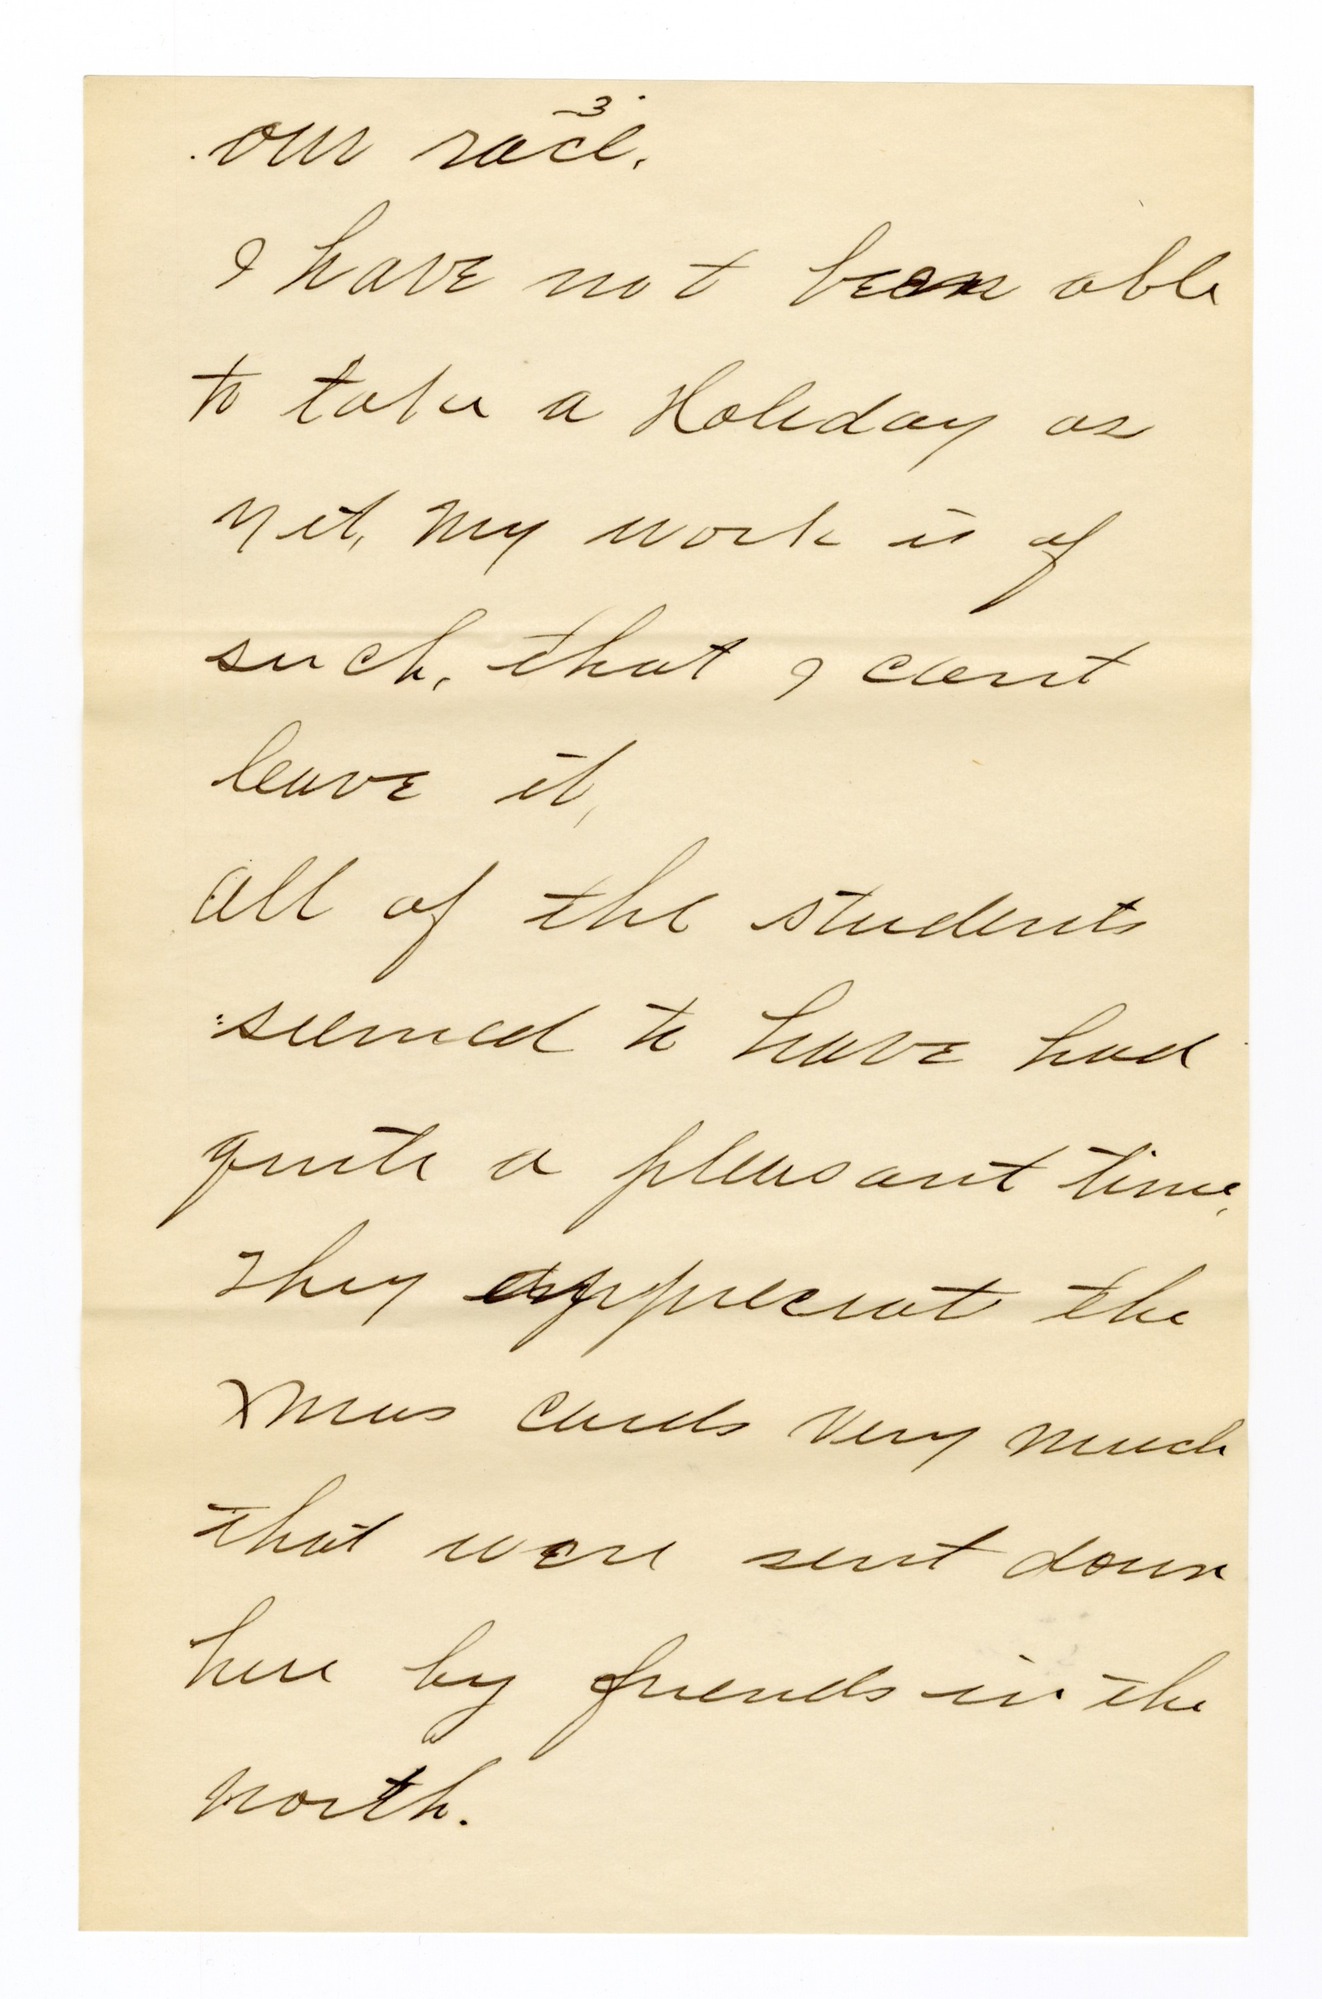 3.
our race.
I have not been able
to take a Holiday as
yet, My work is of
such, that I cant
leave it,
all of the students
seemed to have had
quite a pleasant time,
They appreciat the
Xmas cards very much
that were sent down
here by friends in the
north.